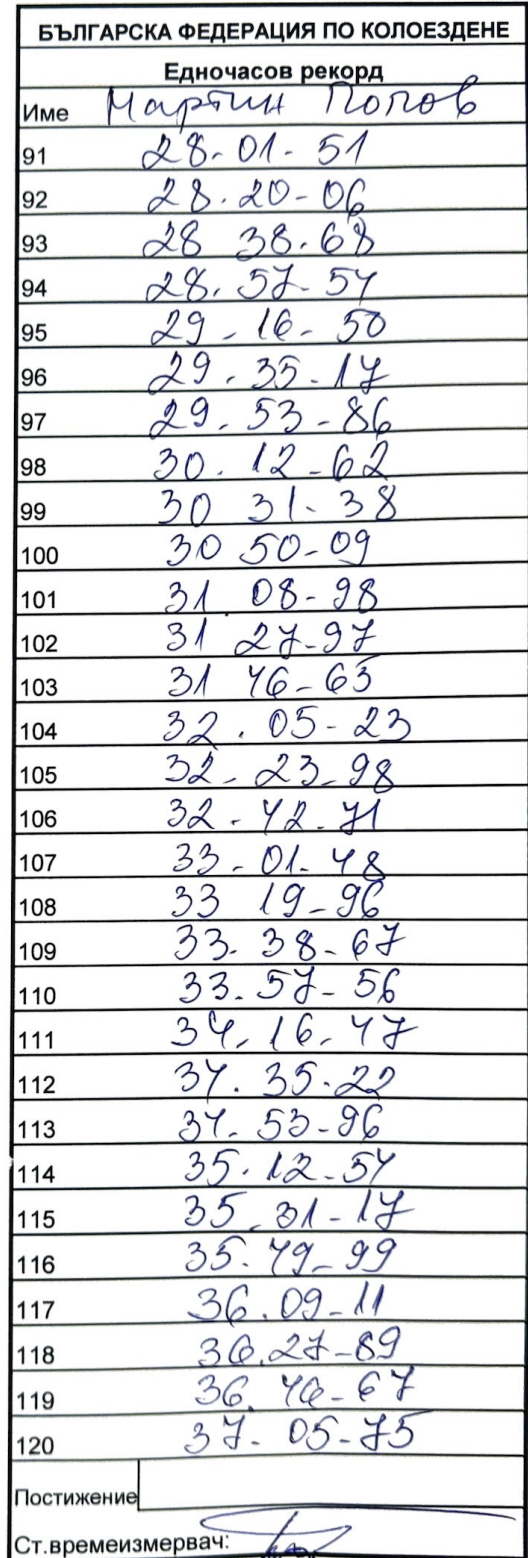 БЪЛГАРСКА ФЕДЕРАЦИЯ ПО КОЛОЕЗДЕНЕ
Едночасов рекорд
Име Мартин Попов
91 28-01-51
92 28.20-06
93 28 38.68
94 28.57-54
95 29-16-50
96 29.35-17
97 29.53-86
98 30.12-62
99 30 31-38
100 30 50-09
101 31 08-98
102 31 27-97
103 31 46-65
104 32.05-23
105 32-23-98
106 32-42-71
107 33-01-48
108 33 19-96
109 33.38-67
110 33.57-56
111 34-16-47
112 34.35.22
113 34-53-96
114 35.12-54
115 35.31-17
116 35.49-99
117 36.09-11
118 36.27-89
119 36.46-67
120 37-05-75
Постижение
Ст.времеизмервач: